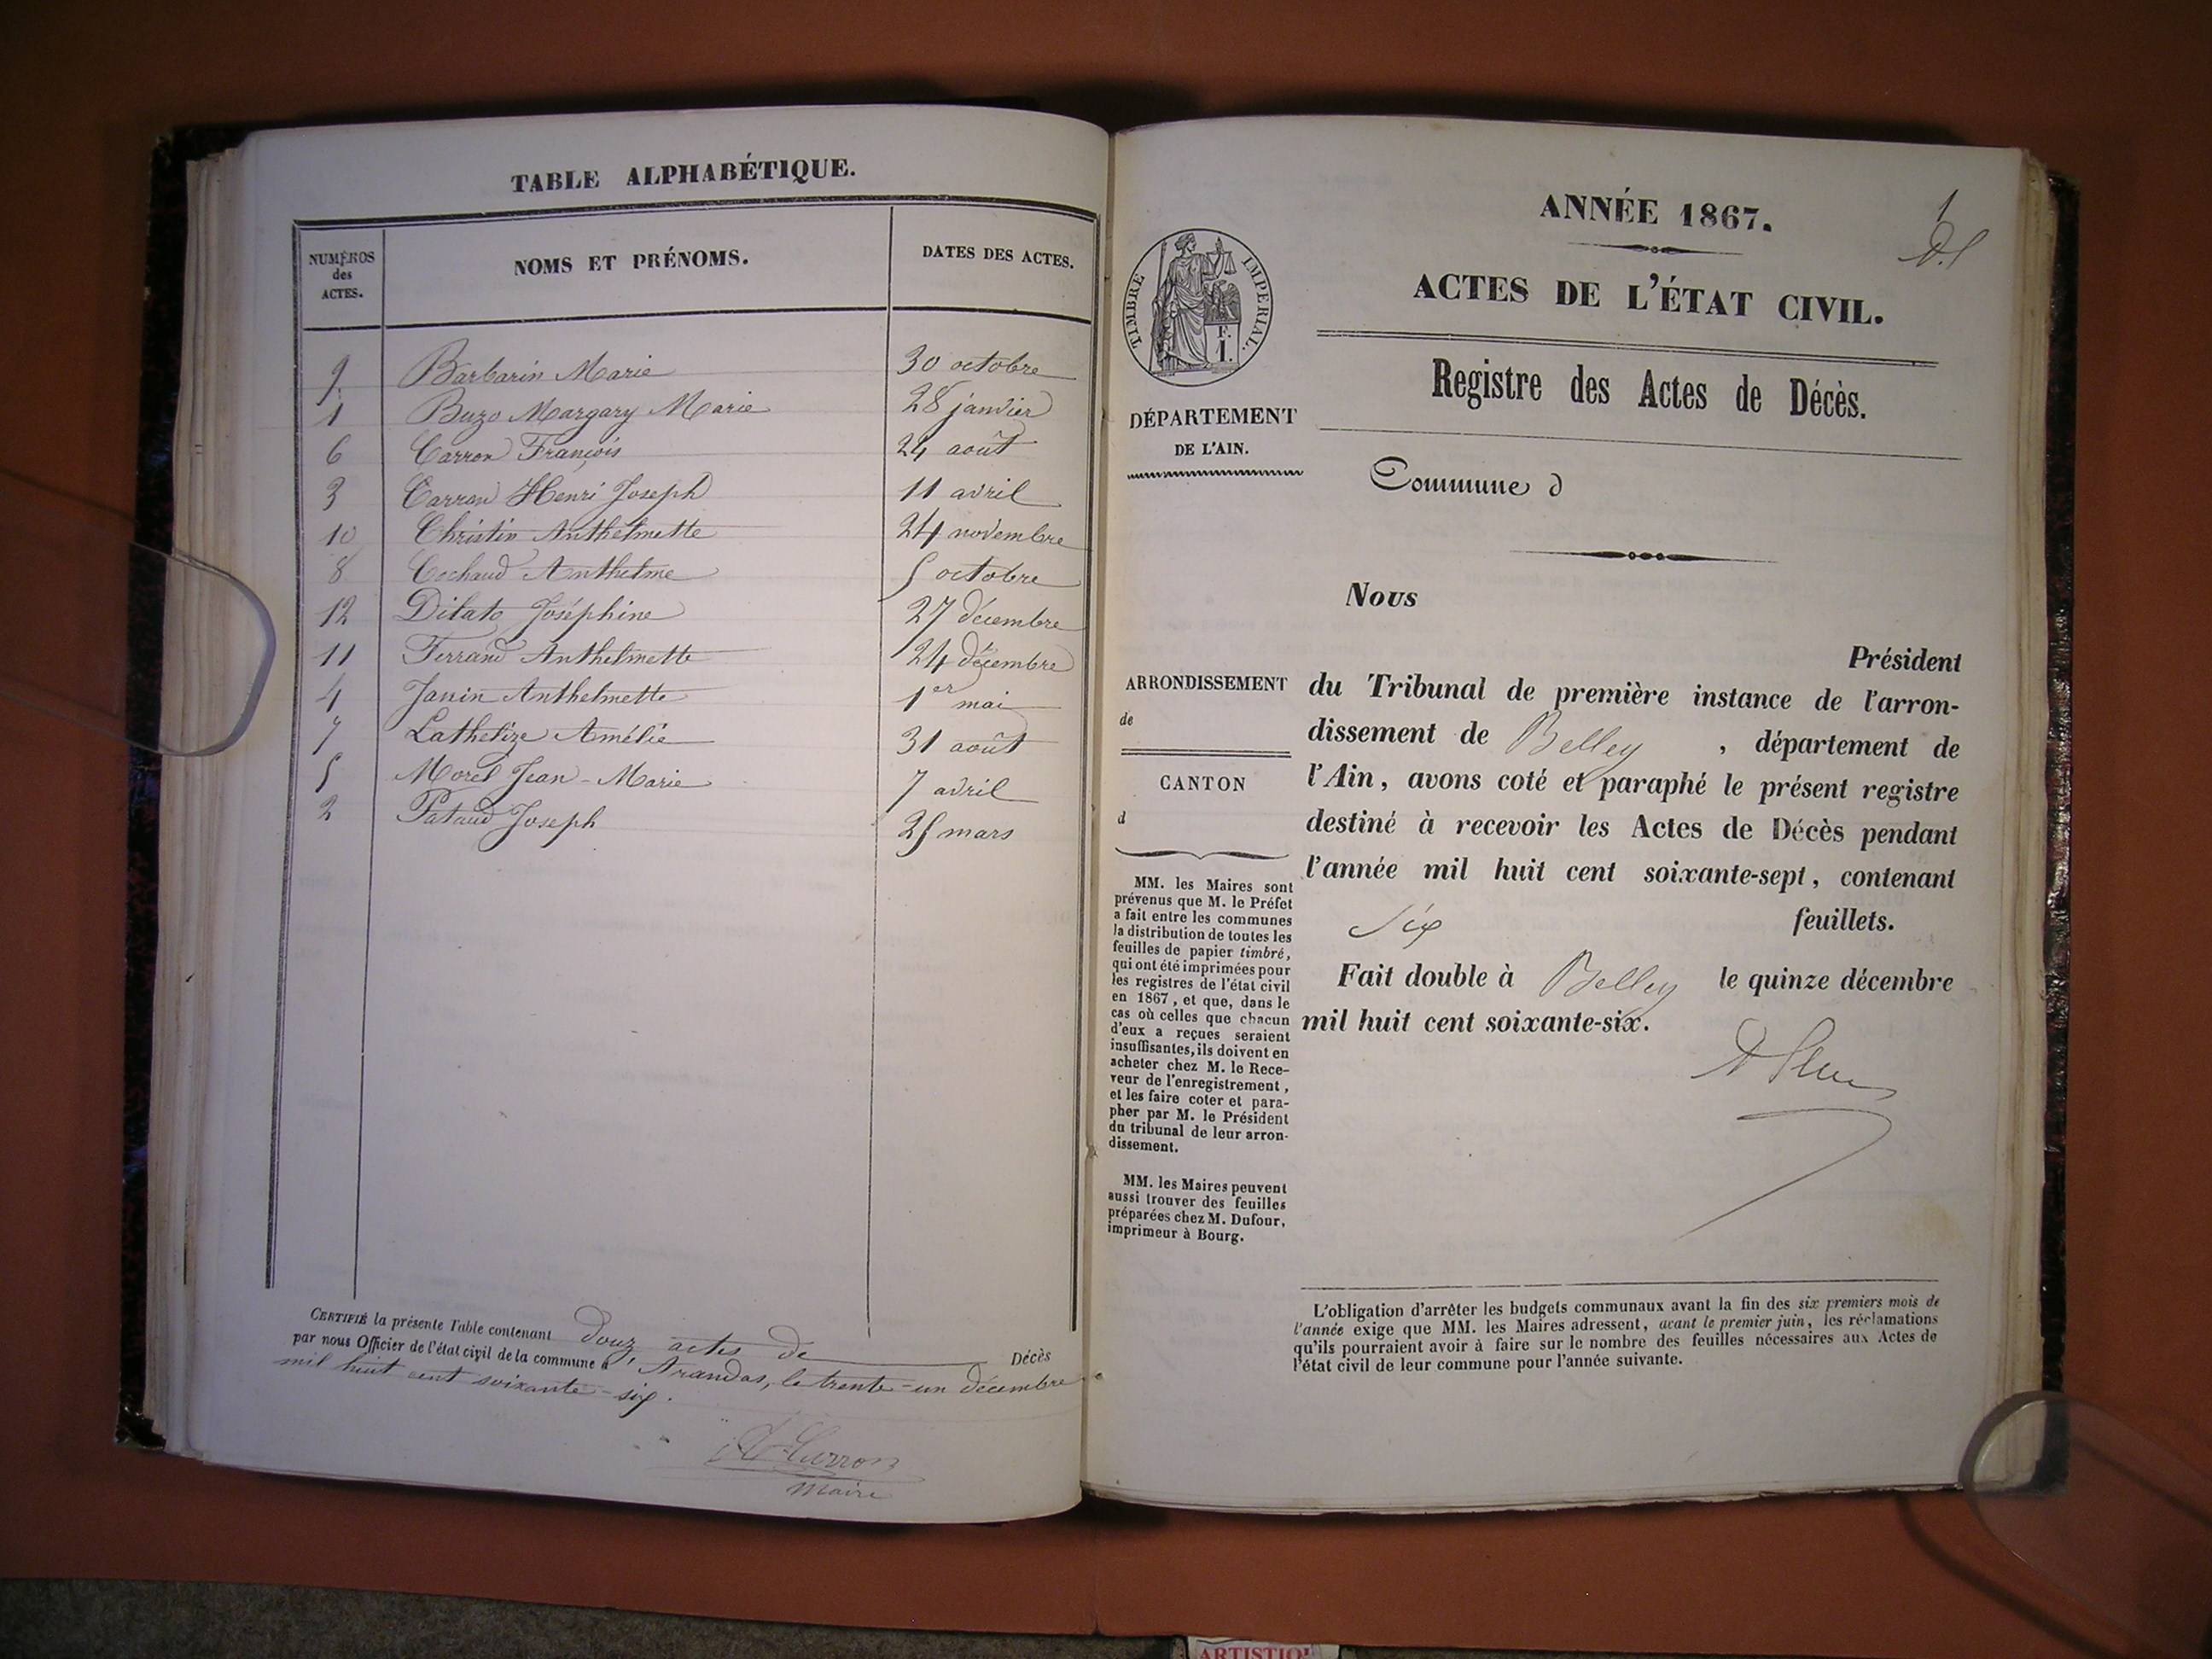 TABLE ALPHABÉTIQUE.
NUMÉROS des ACTES. NOMS ET PRÉNOMS. DATES DES ACTES.
9 Barbarin Marie 30 octobre
1 Buzo Margary Marie 28 janvier
6 Carron François 24 août
3 Carron Henri Joseph 11 avril
10 Christin Anthelmette 24 novembre
8 Cochaud Anthelme 5 octobre
12 Joséphine 27 décembre
11 Ferrand Anthelmette 24 décembre
4 Janin Anthelmette 1er mai
7 Amélie 31 août
5 Morel Jean-Marie 7 avril
2 Pataud Joseph 25 mars
CERTIFIÉ la présente Table contenant douz actes de Décès
par nous Officier de l'état civil de la commune d'Arandas, le trente-un décembre
mil huit cent soixante-six.
Carron
Maire
1
ANNÉE 1867.
ACTES DE L'ÉTAT CIVIL.
Registre des Actes de Décès.
TIMBRE IMPERIAL.
F.
1.
DÉPARTEMENT
DE L'AIN.
Commune d
Nous
Président
ARRONDISSEMENT
de
CANTON
d
du Tribunal de première instance de l'arron-
dissement de Belley , département de
l'Ain, avons coté et paraphé le présent registre
destiné à recevoir les Actes de Décès pendant
l'année mil huit cent soixante-sept, contenant
six feuillets.
Fait double à Belley le quinze décembre
mil huit cent soixante-six.
MM. les Maires sont
prévenus que M. le Préfet
a fait entre les communes
la distribution de toutes les
feuilles de papier timbré,
qui ont été imprimées pour
les registres de l'état civil
en 1867, et que, dans le
cas où celles que chacun
d'eux a reçues seraient
insuffisantes, ils doivent en
acheter chez M. le Rece-
veur de l'enregistrement,
et les faire coter et para-
pher par M. le Président
du tribunal de leur arron-
dissement.
MM. les Maires peuvent
aussi trouver des feuilles
préparées chez M. Dufour,
imprimeur à Bourg.
L'obligation d'arrêter les budgets communaux avant la fin des six premiers mois de
l'année exige que MM. les Maires adressent, avant le premier juin, les réclamations
qu'ils pourraient avoir à faire sur le nombre des feuilles nécessaires aux Actes de
l'état civil de leur commune pour l'année suivante.